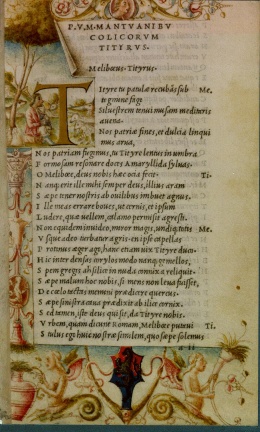 P. V. M. MANTVANI BV
COLICORVM
TITYRVS.
Melibœus. Tityrus.
Tityre tu patulæ recubãs sub Me.
tegmine fagi
Siluestrem tenui musam meditaris
auena.
Nos patriæ fines, et dulcia linqui
mus arua,
Nos patriam fugimus, tu Tityre lentus in umbra
Formosam resonare doces Amaryllida syluas.
O Melibœe, deus nobis hæc ocia fecit. Ti.
Nanq; erit ille mihi semper deus, illius aram
Sæpe tener nostris ab ouilibus imbuet agnus.
Ille meas errare boues, ut cernis, et ipsum
Ludere, quæ uellem, calamo permisit agresti.
Non equidem inuideo, miror magis, undiq; totis Me.
Vsque adeo turbatur agris. en ipse capellas
Protinus æger ago, hanc etiam uix Tityre duco.
Hic inter densas corylos modo nanq; gemellos,
Spem gregis ah silice in nuda connixa reliquit.
Sæpe malum hoc nobis, si mens non læua fuisset,
De cœlo tactas memini prædicere quercus.
Sæpe sinistra caua prædixit ab ilice cornix.
Sed tamen, iste deus qui sit, da Tityre nobis.
Vrbem, quam dicunt Romam, Melibœe putaui Ti.
Stultus ego huic nostræ similem, quo sæpe solemus
a ii